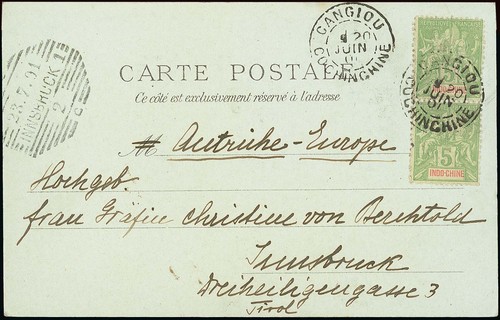 CANGIOU
20
JUIN
01
COCHINCHINE
CANGIOU
20
JUIN
01
COCHINCHINE
INNSBRUCK 1
23.7.01
2
C
CARTE POSTALE
Ce côté est exclusivement réservé à l'adresse
INDO-CHINE
5
INDO-CHINE
M Autriche-Europe
Hochgeb.
frau Gräfin Christine von Berchtold
Innsbruck
Dreiheiligengasse 3
Tirol